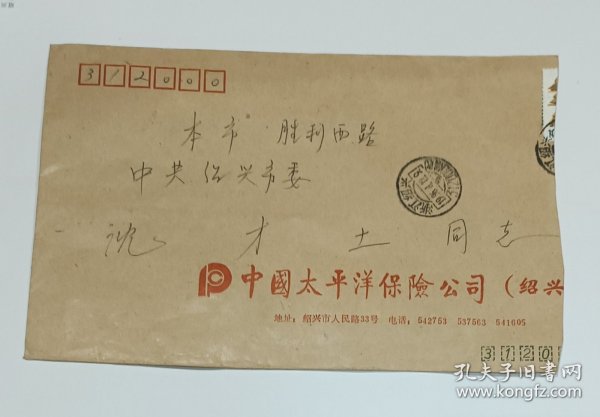 312000
本市 胜利西路
中共绍兴市委
沈 才 土 同志
浙江绍兴
中國太平洋保險公司（绍兴
地址：绍兴市人民路33号 电话：542753 537563 541605
3120
孔夫子旧书网
www.kongfz.com